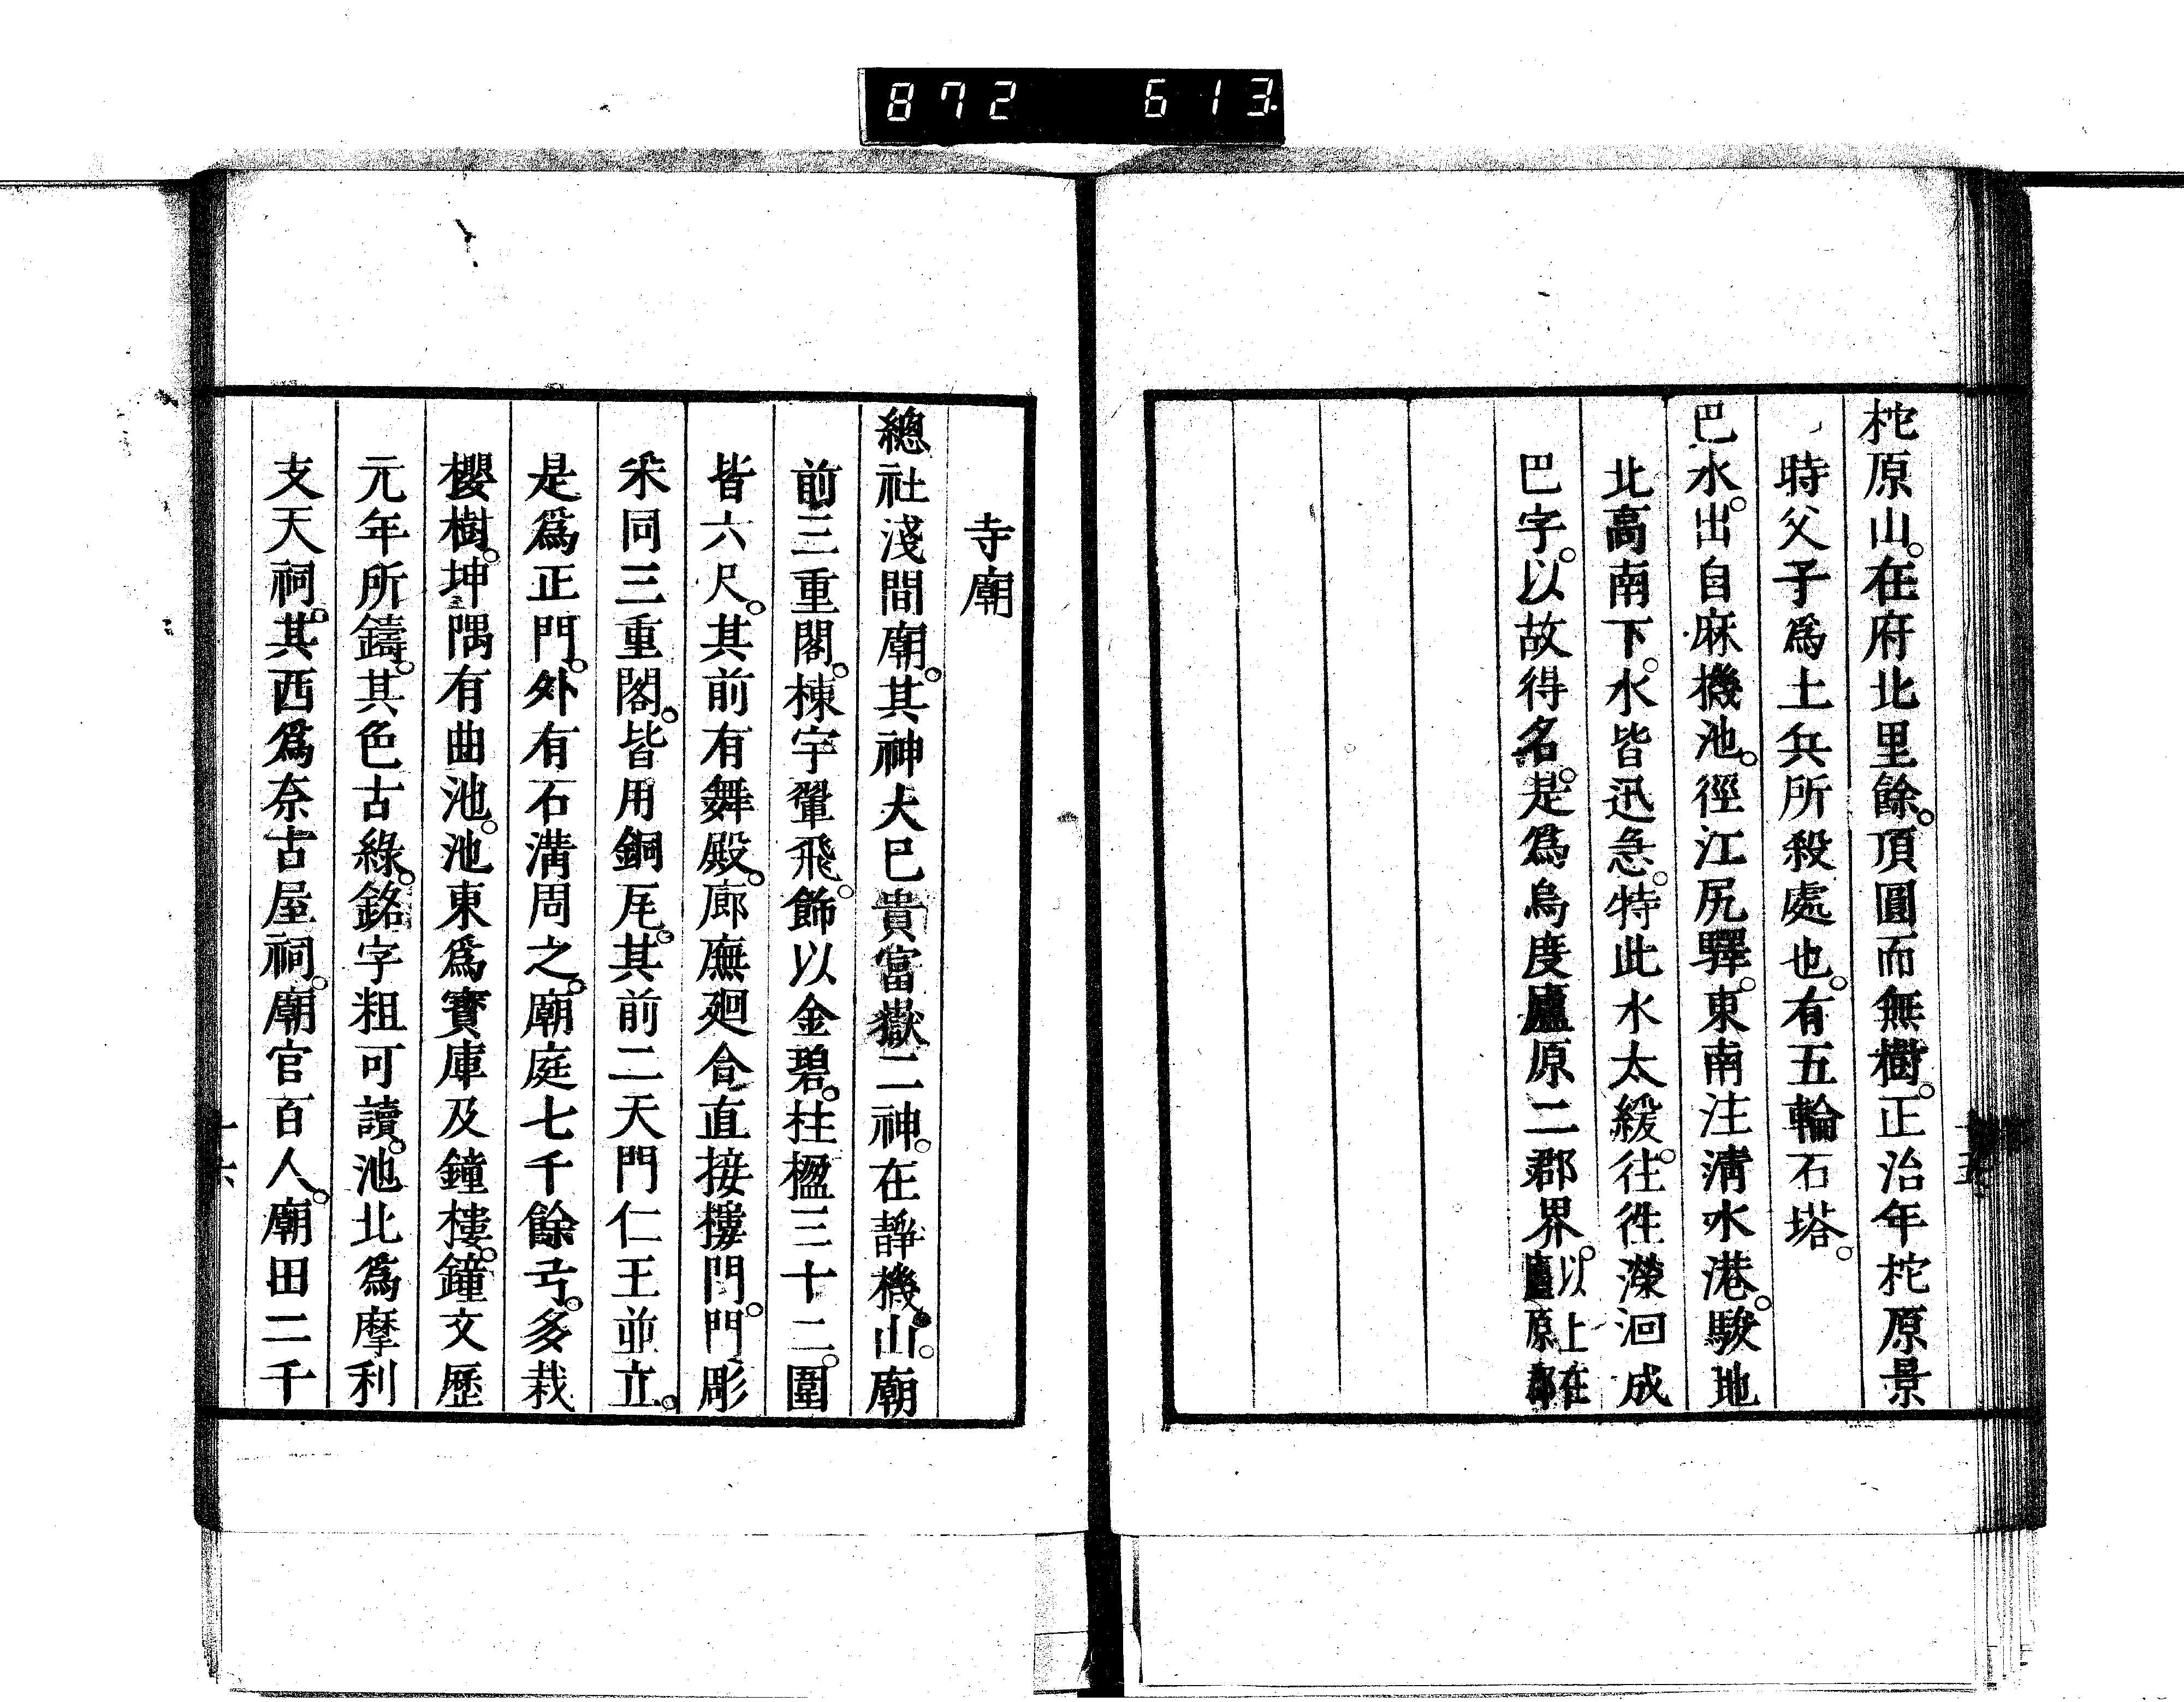 872 613
柁原山。在府北里餘。頂圓而無樹。正治年柁原景
時父子爲土兵所殺處也。有五輪石塔。
巴水。出自麻機池。徑江尻驛。東南注清水港。駿地
北高南下。水皆迅急。特此水太緩。往往濚洄成
巴字。以故得名。是爲烏度廬原二郡界。以上在
廬原郡
寺廟
總社淺間廟。其神大巳貴富嶽二神。在靜機山。廟
前三重閣。棟宇翬飛。飾以金碧。柱楹三十二。圍
皆六尺。其前有舞殿。廊廡廻合直接摟門。門彫
釆同三重閣。皆用銅瓦。其前二天門仁王並立。
是爲正門。外有石溝周之。廟庭七千餘弓。多栽
櫻樹。坤隅有曲池。池東爲寶庫及鐘樓。鐘文歷
元年所鑄。其色古綠。銘字粗可讀。池北爲摩利
支天祠。其西爲奈古屋祠。廟官百人。廟田二千